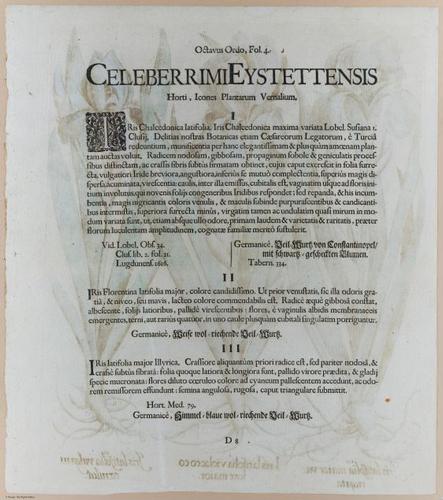 Octavus Ordo, Fol. 4.
CELEBERRIMI EYSTETTENSIS
Horti, Icones Plantarum Vernalium.
I
IRis Chalcedonica latifolia, Iris Chalcedonica maxima variata Lobel. Susiana 1.
Clusij. Delitias nostras Botanicas etiam Cæsareorum Legatorum, è Turciâ
redeuntium, munificentia per hanc elegantissimam & plusquàm amœnam plan-
tam auctas voluit. Radicem nodosam, gibbosam, propaginum sobole & geniculatis proces-
sibus distinctam, ac crassis fibris subtus firmatam obtinet, cujus caput exerescit in folia surre-
cta, vulgatiori Iride breviora, angustiora, inferiùs se mutuò complectentia, superiùs magis di-
spersa, acuminata, virescentia: caulis, inter illa emissus, cubitalis est, vaginatim usque ad floris ini-
tium involutus, qui novenis foliis congeneribus Iridibus respondet: sed repanda, & his incum-
bentia, magis nigricantis coloris venulis, & maculis subinde purpurascentibus & candicanti-
bus intermistis, superiora surrecta minùs, virgatim tamen ac undulatim quasi mirum in mo-
dum variata sunt, ut, etiam absque ullo odore, primam laudem & varietatis & raritatis, præter
florum luculentam amplitudinem, cognatæ familiæ meritò sustulerit.
Vid. Lobel. Obs. 34.
Clus. lib. 2. fol. 31.
Lugdunens. 1616.
Germanicè, Veil-Wurtz von Constantinopel/
mit schwartz-gescheckten Blumen.
Tabern. 334.
II
IRis Florentina latifolia major, colore candidissimo. Ut prior venustatis, sic illa odoris gra-
tiâ, & niveo, seu mavis, lacteo colore commendabilis est. Radice æquè gibbosâ constat,
albescente, foliis latioribus, pallidè virescentibus: flores, è vaginulis albidis membranaceis
emergentes, terni, aut rariùs quatuor, in uno caule plusquàm cubitali singulatim porriguntur.
Germanicè, Weisse wol-riechende Veil-Wurtz.
III
IRis latifolia major Illyrica. Crassiore aliquantùm priori radice est, sed pariter nodosâ, &
crassiè subtùs fibratâ: folia quoque latiora & longiora sunt, pallido virore prædita, & gladij
specie mucronata: flores diluto cœruleo colore ad cyaneum pallescentem accedunt, ac odo-
rem remissiorem effundunt: semina angulosa, rugosa, caput triangulare submittit.
Hort. Med. 79.
Germanicè, Himmel-blaue wol-riechende Veil-Wurtz.
D 8